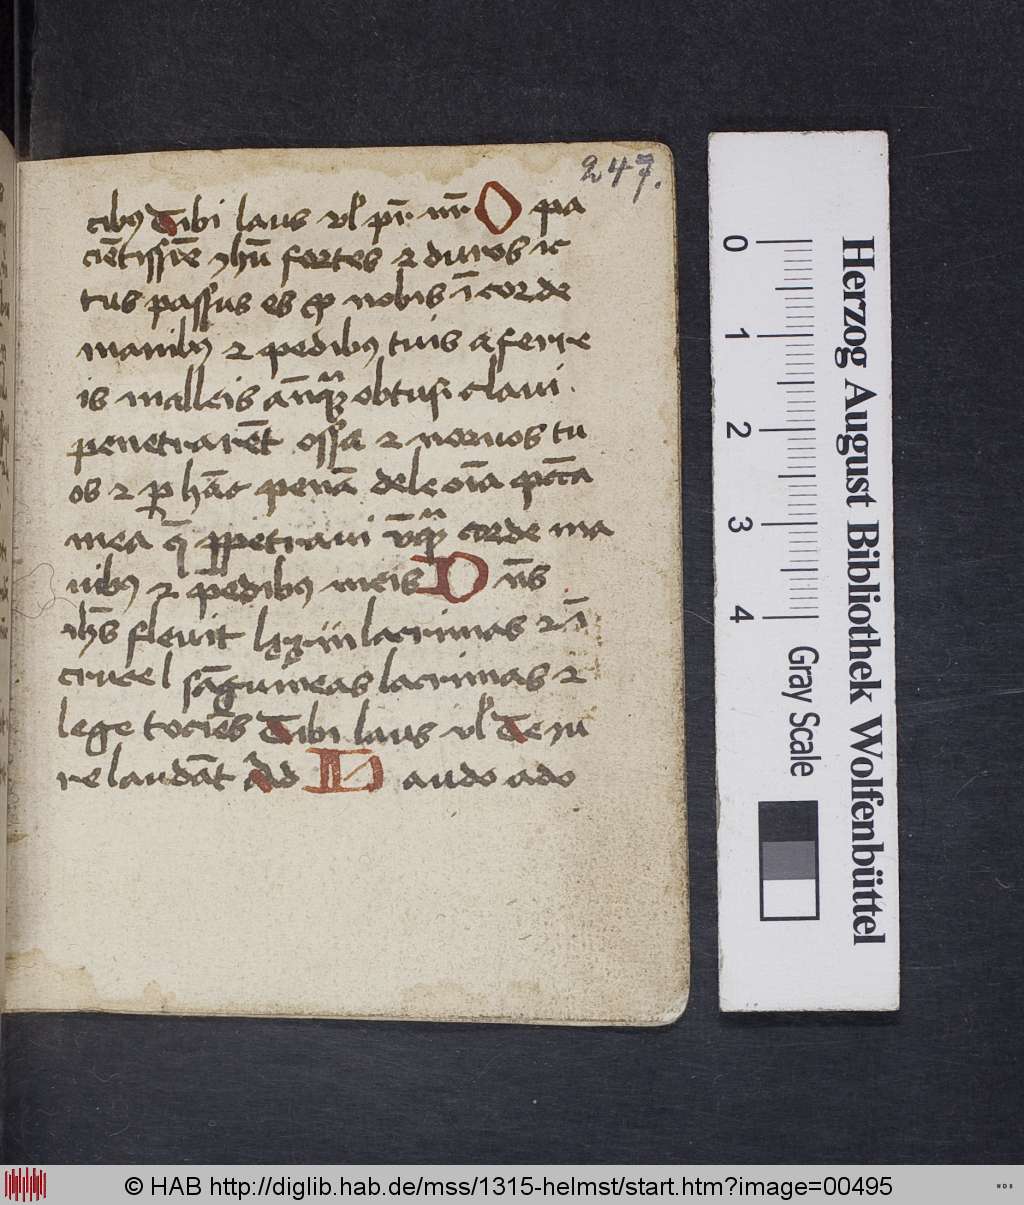 247.
cibꝯ Tibi laus vl' pr̄ nr̄ O pa
ciētissīe yhū fortes ⁊ duros ic
tus passus es ꝓ nobis ī corde
manibꝯ ⁊ pedibꝯ tuis a ferre
is malleis obtusi claui
penetrarēt ossa ⁊ neruos tu
os ⁊ ꝑ hāc penā dele oīa pctā
mea q̄ ꝑpetraui corde ma
nibꝯ ⁊ pedibꝯ meis D ns̄
ihs̄ fleuit lxxiii lacrimas ⁊ ī
cruce l sāguineas lacrimas ⁊
lege tociēs Tibi laus vl' Te iu
re laudāt Ad Laudo ado
Herzog August Bibliothek Wolfenbüttel
0 1 2 3 4
Gray Scale
© HAB http://diglib.hab.de/mss/1315-helmst/start.htm?image=00495